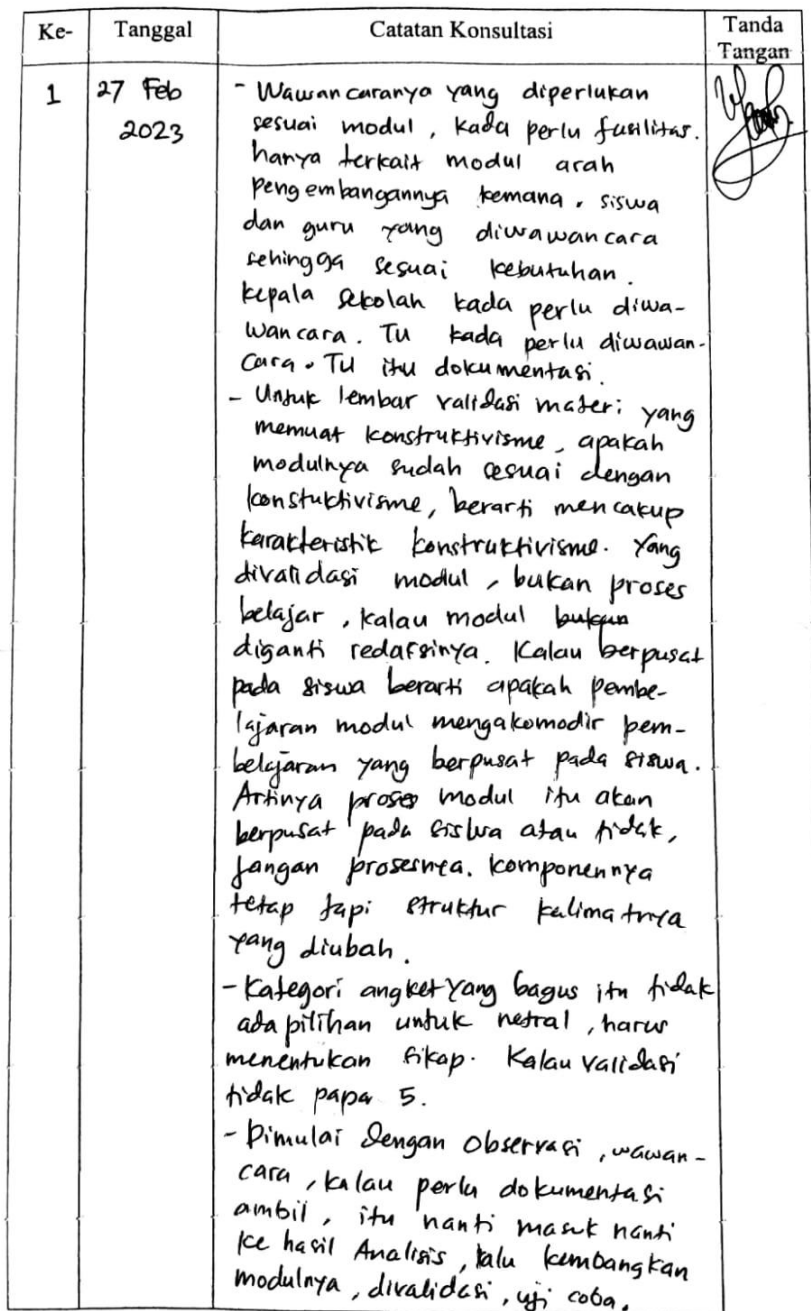 Ke- Tanggal Catatan Konsultasi Tanda Tangan
1 27 Feb 2023
- Wawancaranya yang diperlukan
sesuai modul, kada perlu fasilitas.
hanya terkait modul arah
pengembangannya kemana. siswa
dan guru yang diwawancara
sehingga sesuai kebutuhan.
kepala sekolah kada perlu diwa-
wancara. TU kada perlu diwawan-
cara. TU itu dokumentasi.
- Untuk lembar validasi materi yang
memuat konstruktivisme, apakah
modulnya sudah sesuai dengan
konstuktivisme, berarti mencakup
karakteristik konstruktivisme. Yang
divalidasi modul, bukan proses
belajar, kalau modul bukan
diganti redaksinya. Kalau berpusat
pada siswa berarti apakah pembe-
lajaran modul mengakomodir pem-
belajaran yang berpusat pada siswa.
Artinya proses modul itu akan
berpusat pada siswa atau tidak,
jangan prosesnya. komponennya
tetap tapi struktur kalimatnya
yang diubah.
- Kategori angket yang bagus itu tidak
ada pilihan untuk netral, harus
menentukan sikap. Kalau validasi
tidak papa 5.
- Dimulai dengan observasi, wawan-
cara, kalau perlu dokumentasi
ambil, itu nanti masuk nanti
ke hasil Analisis, lalu kembangkan
modulnya, divalidasi, uji coba.